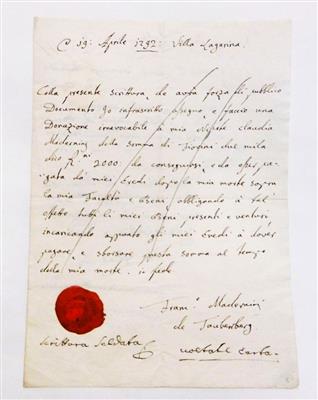 19: Aprile 1792: Villa Lagarina.
Colla presente scrittura che avrà forza di pubblico
Documento Io infrascritto assegno, e faccio una
Donazione irrevocabile a mia Nipote Claudia
Madernini della somma di Fiorini due mila
dico 2000: da conseguirsi, e da esser pa-
gata da' miei Eredi dopo la mia morte sopra
la mia Facoltà e Beni obligando à tal
effetto tutti li miei Beni presenti e venturi
incaricando appunto gli miei Eredi à dover
pagare, e sborsare questa somma al tempo
della mia morte. in fede
Fran.º
de Taubenberg
Scrittura Saldata
voltate Carta.